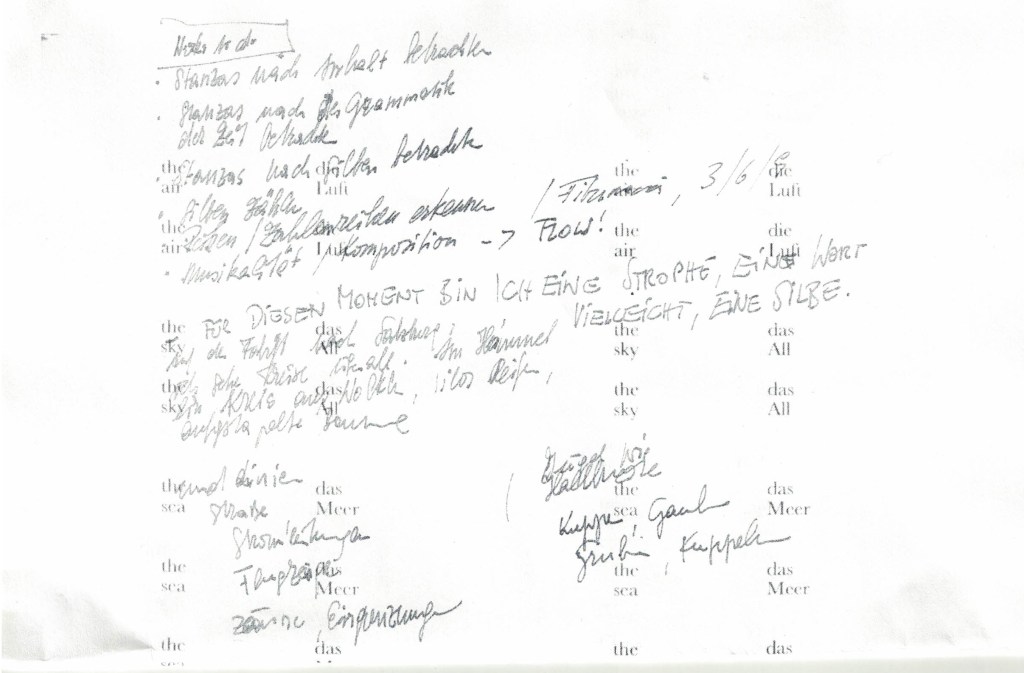 • Stanzas nach Inhalt betrachten
• Stanzas nach der Grammatik
der Zeit betrachten
• Stanzas nach Silben betrachten
the die the die
air Luft Luft
• Silben zählen
/ 3/6/9
the the die
air air Luft
/ Zahlenreihen erkennen
• Musikalität / Komposition -> FLOW!
FÜR DIESEN MOMENT BIN ICH EINE STROPHE, EIN WORT
VIELLEICHT, EINE SILBE.
the das the das
sky All sky All
Auf der Fahrt nach Salzburg
ich sehe Kreise überall. Im Himmel
the das the das
sky All sky All
ein Kreis aus Wolken, Silos, Reifen,
aufgestapelte Bäume
the das the das
sea Meer sea Meer
und Linien
Straße
Stromleitungen
Flugzeuge
Zäune, Eingrenzungen
Hügel wie
Kuppe,
Gruben, Kuppeln
the das the das
sea Meer sea Meer
the das the das